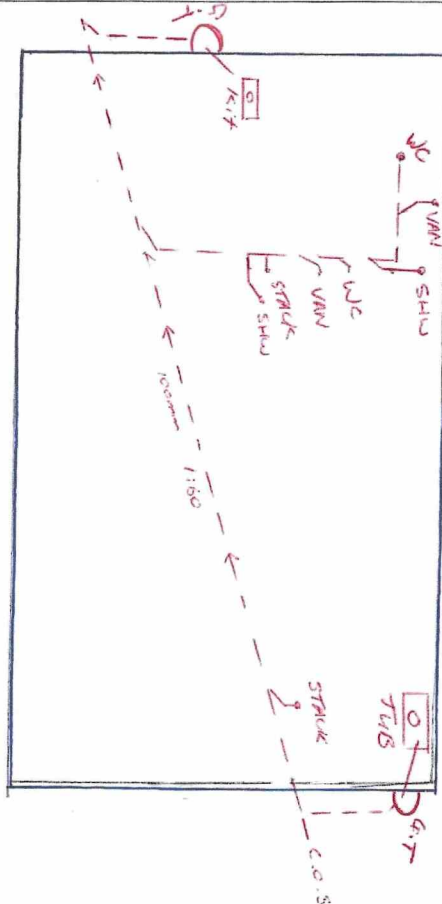 G.T
Kit
WC
VAN
SHW
WC
VAN
STACK
SHW
100mm 1:60
STACK
TUB
G.T
C.O.S